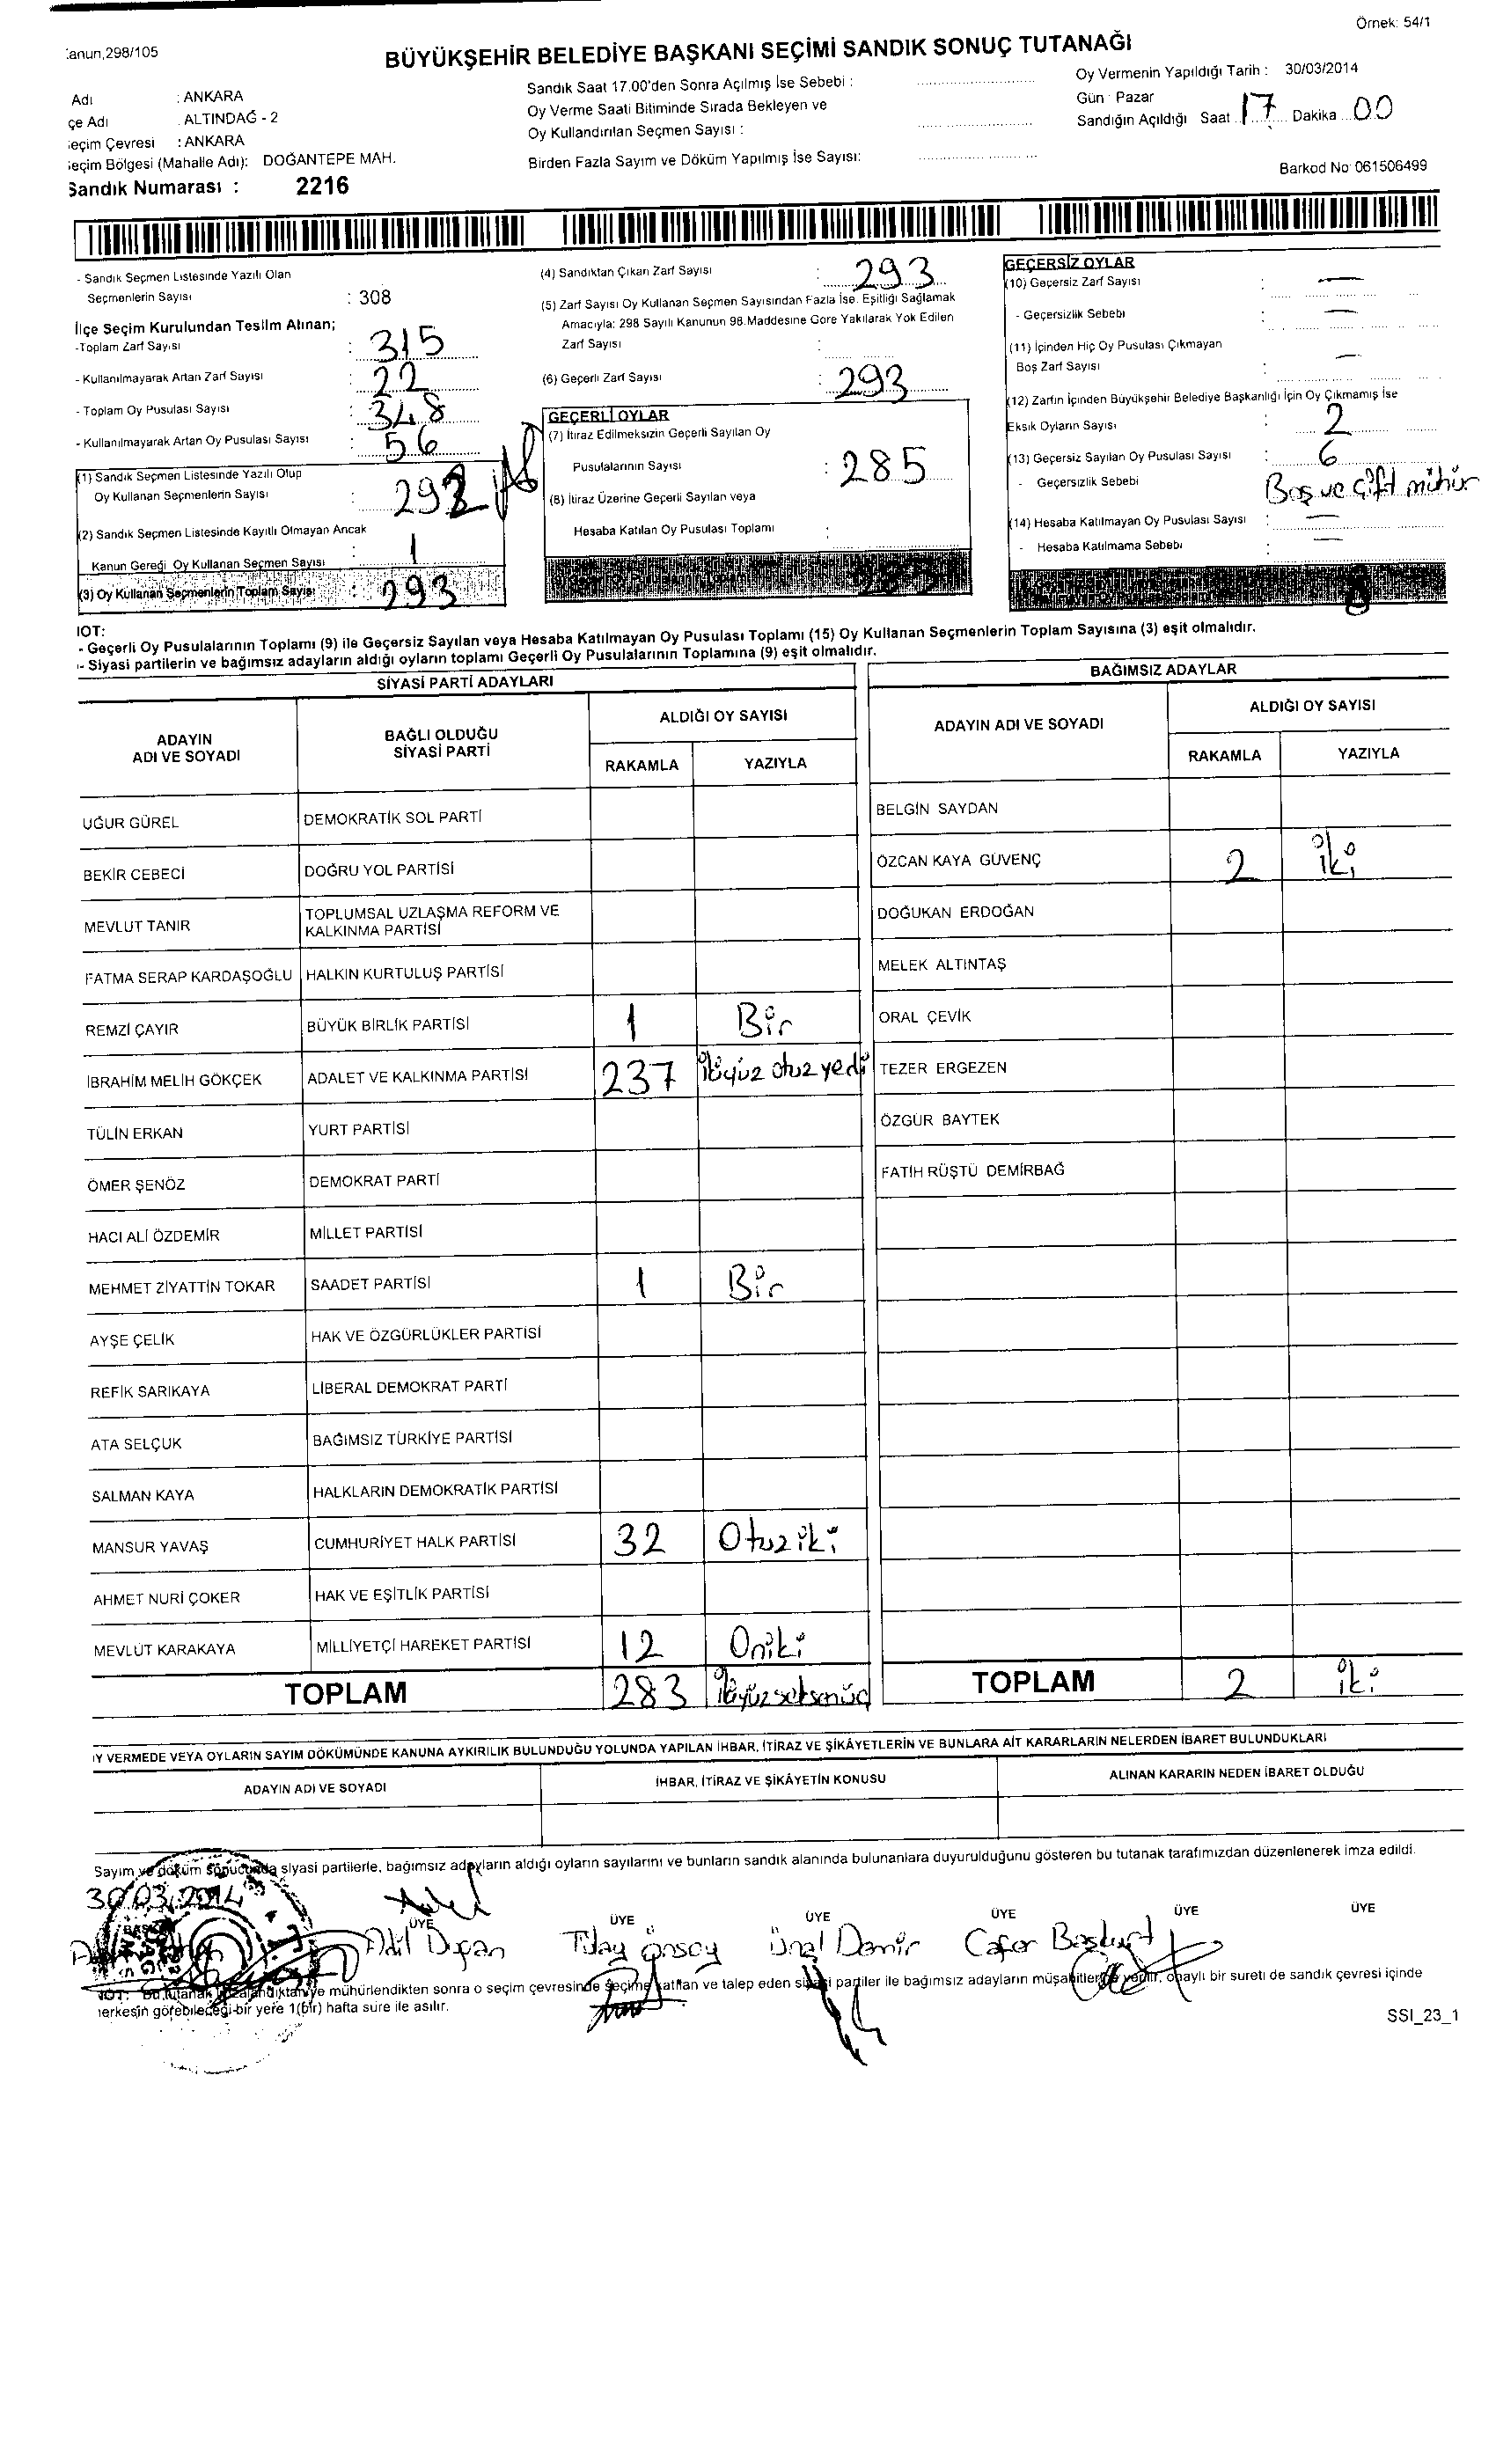 Örnek: 54/1
anun,298/105
BÜYÜKŞEHİR BELEDİYE BAŞKANI SEÇİMİ SANDIK SONUÇ TUTANAĞI
Adı : ANKARA
çe Adı ALTINDAĞ - 2
eçim Çevresi : ANKARA
eçim Bölgesi (Mahalle Adı): DOĞANTEPE MAH.
Sandık Numarası : 2216
Sandık Saat 17.00'den Sonra Açılmış İse Sebebi :
Oy Verme Saati Bitiminde Sırada Bekleyen ve
Oy Kullandırılan Seçmen Sayısı :
Birden Fazla Sayım ve Döküm Yapılmış İse Sayısı:
Oy Vermenin Yapıldığı Tarih : 30/03/2014
Gün : Pazar
Sandığın Açıldığı Saat 17 Dakika 00
Barkod No 061506499
- Sandık Seçmen Listesinde Yazılı Olan
Seçmenlerin Sayısı : 308
İlçe Seçim Kurulundan Teslim Alınan;
-Toplam Zarf Sayısı : 315
- Kullanılmayarak Artan Zarf Sayısı : 22
- Toplam Oy Pusulası Sayısı : 348
- Kullanılmayarak Artan Oy Pusulası Sayısı : 56
(1) Sandık Seçmen Listesinde Yazılı Olup
Oy Kullanan Seçmenlerin Sayısı : 292
(2) Sandık Seçmen Listesinde Kayıtlı Olmayan Ancak
Kanun Gereği Oy Kullanan Seçmen Sayısı : 1
(3) Oy Kullanan Seçmenlerin Toplam Sayısı : 293
(4) Sandıktan Çıkan Zarf Sayısı : 293
(5) Zarf Sayısı Oy Kullanan Seçmen Sayısından Fazla İse, Eşitliği Sağlamak
Amacıyla: 298 Sayılı Kanunun 98.Maddesine Göre Yakılarak Yok Edilen
Zarf Sayısı :
(6) Geçerli Zarf Sayısı : 293
GEÇERLİ OYLAR
(7) İtiraz Edilmeksizin Geçerli Sayılan Oy
Pusulalarının Sayısı : 285
(8) İtiraz Üzerine Geçerli Sayılan veya
Hesaba Katılan Oy Pusulası Toplamı :
GEÇERSİZ OYLAR
(10) Geçersiz Zarf Sayısı : —
- Geçersizlik Sebebi : —
(11) İçinden Hiç Oy Pusulası Çıkmayan
Boş Zarf Sayısı : —
(12) Zarfın İçinden Büyükşehir Belediye Başkanlığı İçin Oy Çıkmamış İse
Eksik Oyların Sayısı : 2
(13) Geçersiz Sayılan Oy Pusulası Sayısı : 6
- Geçersizlik Sebebi Boş ve çift mühür
(14) Hesaba Katılmayan Oy Pusulası Sayısı : —
- Hesaba Katılmama Sebebi : —
8
NOT:
- Geçerli Oy Pusulalarının Toplamı (9) ile Geçersiz Sayılan veya Hesaba Katılmayan Oy Pusulası Toplamı (15) Oy Kullanan Seçmenlerin Toplam Sayısına (3) eşit olmalıdır.
- Siyasi partilerin ve bağımsız adayların aldığı oyların toplamı Geçerli Oy Pusulalarının Toplamına (9) eşit olmalıdır.
SİYASİ PARTİ ADAYLARI
ADAYIN ADI VE SOYADI BAĞLI OLDUĞU SİYASİ PARTİ ALDIĞI OY SAYISI RAKAMLA YAZIYLA
UĞUR GÜREL DEMOKRATİK SOL PARTİ
BEKİR CEBECİ DOĞRU YOL PARTİSİ
MEVLUT TANIR TOPLUMSAL UZLAŞMA REFORM VE KALKINMA PARTİSİ
FATMA SERAP KARDAŞOĞLU HALKIN KURTULUŞ PARTİSİ
REMZİ ÇAYIR BÜYÜK BİRLİK PARTİSİ 1 Bir
İBRAHİM MELİH GÖKÇEK ADALET VE KALKINMA PARTİSİ 237 ikiyüz otuz yedi
TÜLİN ERKAN YURT PARTİSİ
ÖMER ŞENÖZ DEMOKRAT PARTİ
HACI ALİ ÖZDEMİR MİLLET PARTİSİ
MEHMET ZİYATTİN TOKAR SAADET PARTİSİ 1 Bir
AYŞE ÇELİK HAK VE ÖZGÜRLÜKLER PARTİSİ
REFİK SARIKAYA LİBERAL DEMOKRAT PARTİ
ATA SELÇUK BAĞIMSIZ TÜRKİYE PARTİSİ
SALMAN KAYA HALKLARIN DEMOKRATİK PARTİSİ
MANSUR YAVAŞ CUMHURİYET HALK PARTİSİ 32 Otuz iki
AHMET NURİ ÇOKER HAK VE EŞİTLİK PARTİSİ
MEVLÜT KARAKAYA MİLLİYETÇİ HAREKET PARTİSİ 12 Oniki
TOPLAM 283 ikiyüz seksenüç
BAĞIMSIZ ADAYLAR
ADAYIN ADI VE SOYADI ALDIĞI OY SAYISI RAKAMLA YAZIYLA
BELGİN SAYDAN
ÖZCAN KAYA GÜVENÇ 2 iki
DOĞUKAN ERDOĞAN
MELEK ALTINTAŞ
ORAL ÇEVİK
TEZER ERGEZEN
ÖZGÜR BAYTEK
FATİH RÜŞTÜ DEMİRBAĞ
TOPLAM 2 iki
Y VERMEDE VEYA OYLARIN SAYIM DÖKÜMÜNDE KANUNA AYKIRILIK BULUNDUĞU YOLUNDA YAPILAN İHBAR, İTİRAZ VE ŞİKÂYETLERİN VE BUNLARA AİT KARARLARIN NELERDEN İBARET BULUNDUKLARI
ADAYIN ADI VE SOYADI İHBAR, İTİRAZ VE ŞİKÂYETİN KONUSU ALINAN KARARIN NEDEN İBARET OLDUĞU
Sayım ve döküm sonucunda siyasi partilerle, bağımsız adayların aldığı oyların sayılarını ve bunların sandık alanında bulunanlara duyurulduğunu gösteren bu tutanak tarafımızdan düzenlenerek imza edildi.
30.03.2014
ÜYE ÜYE ÜYE ÜYE ÜYE ÜYE
Adil Tülay Ünal Demir Cafer
NOT: Bu tutanak imzalandıktan ve mühürlendikten sonra o seçim çevresinde seçime katılan ve talep eden siyasi partiler ile bağımsız adayların müşahitlerine verilir, onaylı bir sureti de sandık çevresi içinde
herkesin görebileceği bir yere 1(bir) hafta süre ile asılır.
SSI_23_1